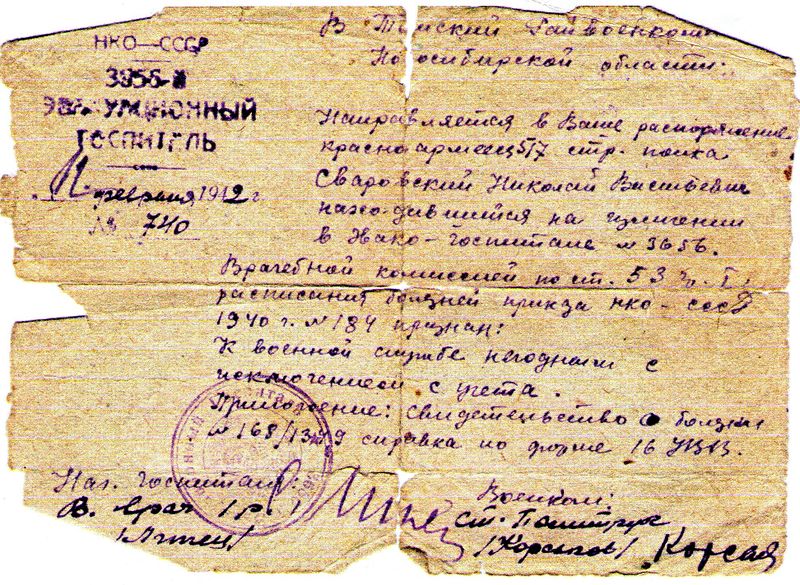 НКО—СССР
3656-й
ЭВАКУАЦИОННЫЙ
ГОСПИТЕЛЬ
11 февраля 1942 г.
№ 740
В Томский Райвоенком
Новосибирской области.
Направляется в Ваше распоряжение
красноармеец 517 стр. полка
Сваровский Николай Васильевич
находившийся на излечении
в Эвако-Госпитале № 3656.
Врачебной комиссией по ст. 53 ч. I,
расписания болезней приказа НКО-СССР
1940 г. № 184 признан:
К военной службе негодным с
исключением с учета.
Приложение: Свидетельство о болезни
№ 168/1379 справка по форме 16 УВВ.
Нач. Госпиталя:
В. врач /р.
Военком:
ст. Политрук